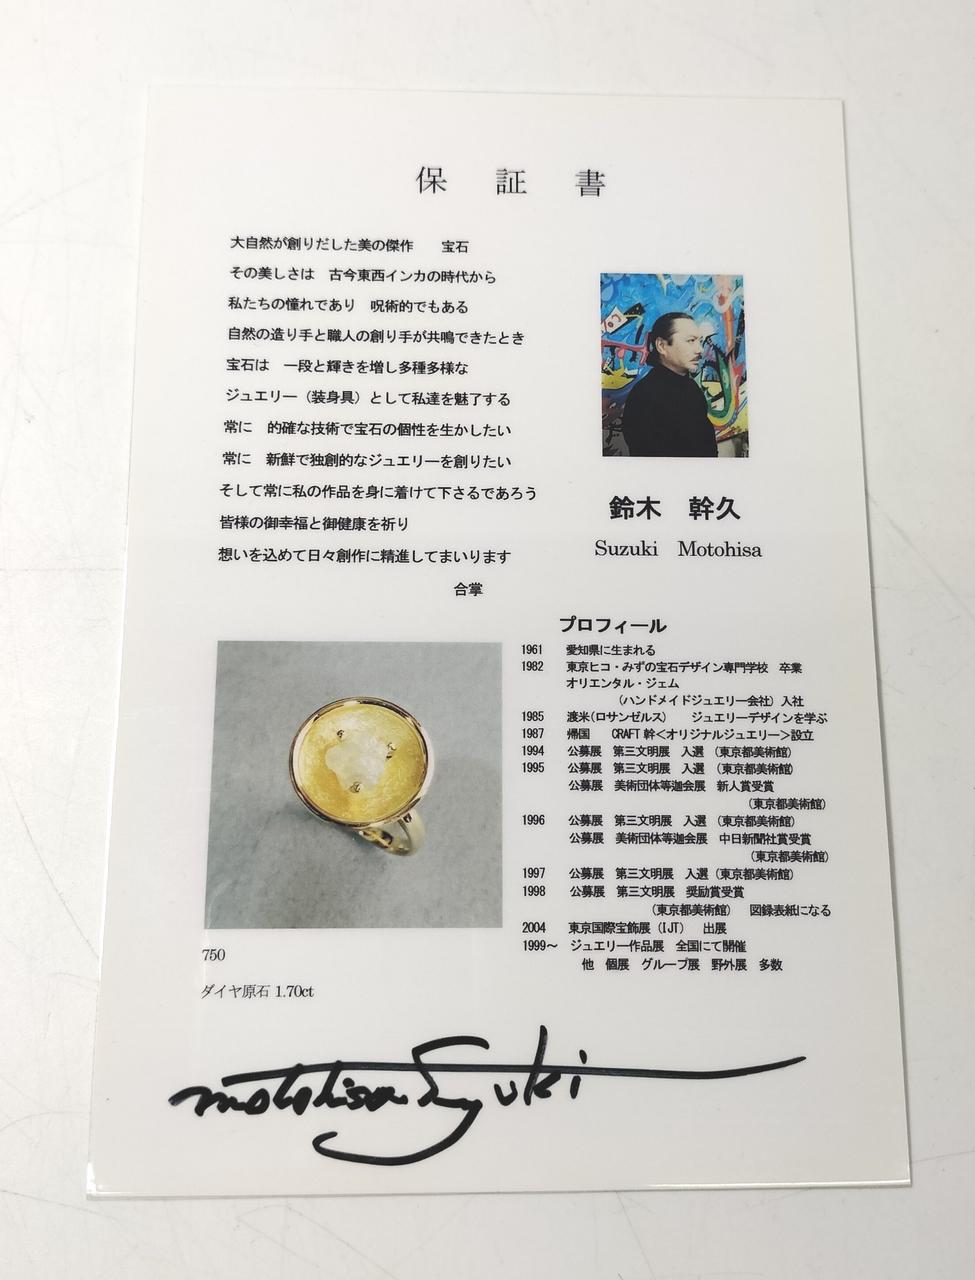 保証書
大自然が創りだした美の傑作　宝石
その美しさは　古今東西インカの時代から
私たちの憧れであり　呪術的でもある
自然の造り手と職人の創り手が共鳴できたとき
宝石は　一段と輝きを増し多種多様な
ジュエリー（装身具）として私達を魅了する
常に　的確な技術で宝石の個性を生かしたい
常に　新鮮で独創的なジュエリーを創りたい
そして常に私の作品を身に着けて下さるであろう
皆様の御幸福と御健康を祈り
想いを込めて日々創作に精進してまいります
合掌
鈴木　幹久
Suzuki Motohisa
プロフィール
1961　愛知県に生まれる
1982　東京ヒコ・みずの宝石デザイン専門学校　卒業
オリエンタル・ジェム
（ハンドメイドジュエリー会社）入社
1985　渡米(ロサンゼルス)　ジュエリーデザインを学ぶ
1987　帰国　CRAFT 幹＜オリジナルジュエリー＞設立
1994　公募展　第三文明展　入選（東京都美術館）
1995　公募展　第三文明展　入選（東京都美術館）
公募展　美術団体等迦会展　新人賞受賞
（東京都美術館）
1996　公募展　第三文明展　入選（東京都美術館）
公募展　美術団体等迦会展　中日新聞社賞受賞
（東京都美術館）
1997　公募展　第三文明展　入選（東京都美術館）
1998　公募展　第三文明展　奨励賞受賞
（東京都美術館）　図録表紙になる
2004　東京国際宝飾展（IJT）　出展
1999～　ジュエリー作品展　全国にて開催
他　個展　グループ展　野外展　多数
750
ダイヤ原石 1.70ct
motohisa Suzuki